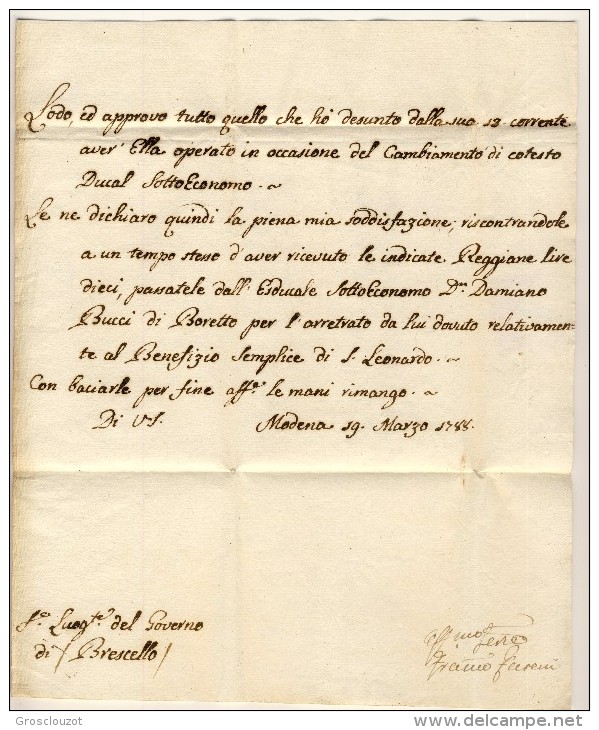 Lodo, ed approvo tutto quello che hò desunto dalla sua 13. corrente
aver' Ella operato in occasione del Cambiamento di cotesto
Ducal SottoEconomo. ~
Le ne dichiaro quindi la piena mia soddisfazione; riscontrandole
a un tempo stesso d'aver ricevuto le indicate Reggiane lire
dieci, passatele dall'Esducale SottoEconomo Dn. Damiano
Bucci di Boretto per l'arretrato da lui dovuto relativamen-
te al Benefizio Semplice di S. Leonardo. ~
Con baciarle per fine affe. le mani rimango. ~
Di VS. Modena 19. Marzo 1788.
Sr. Luogte. del Governo
di / Brescello /
Grosclouzot
www.delcampe.net